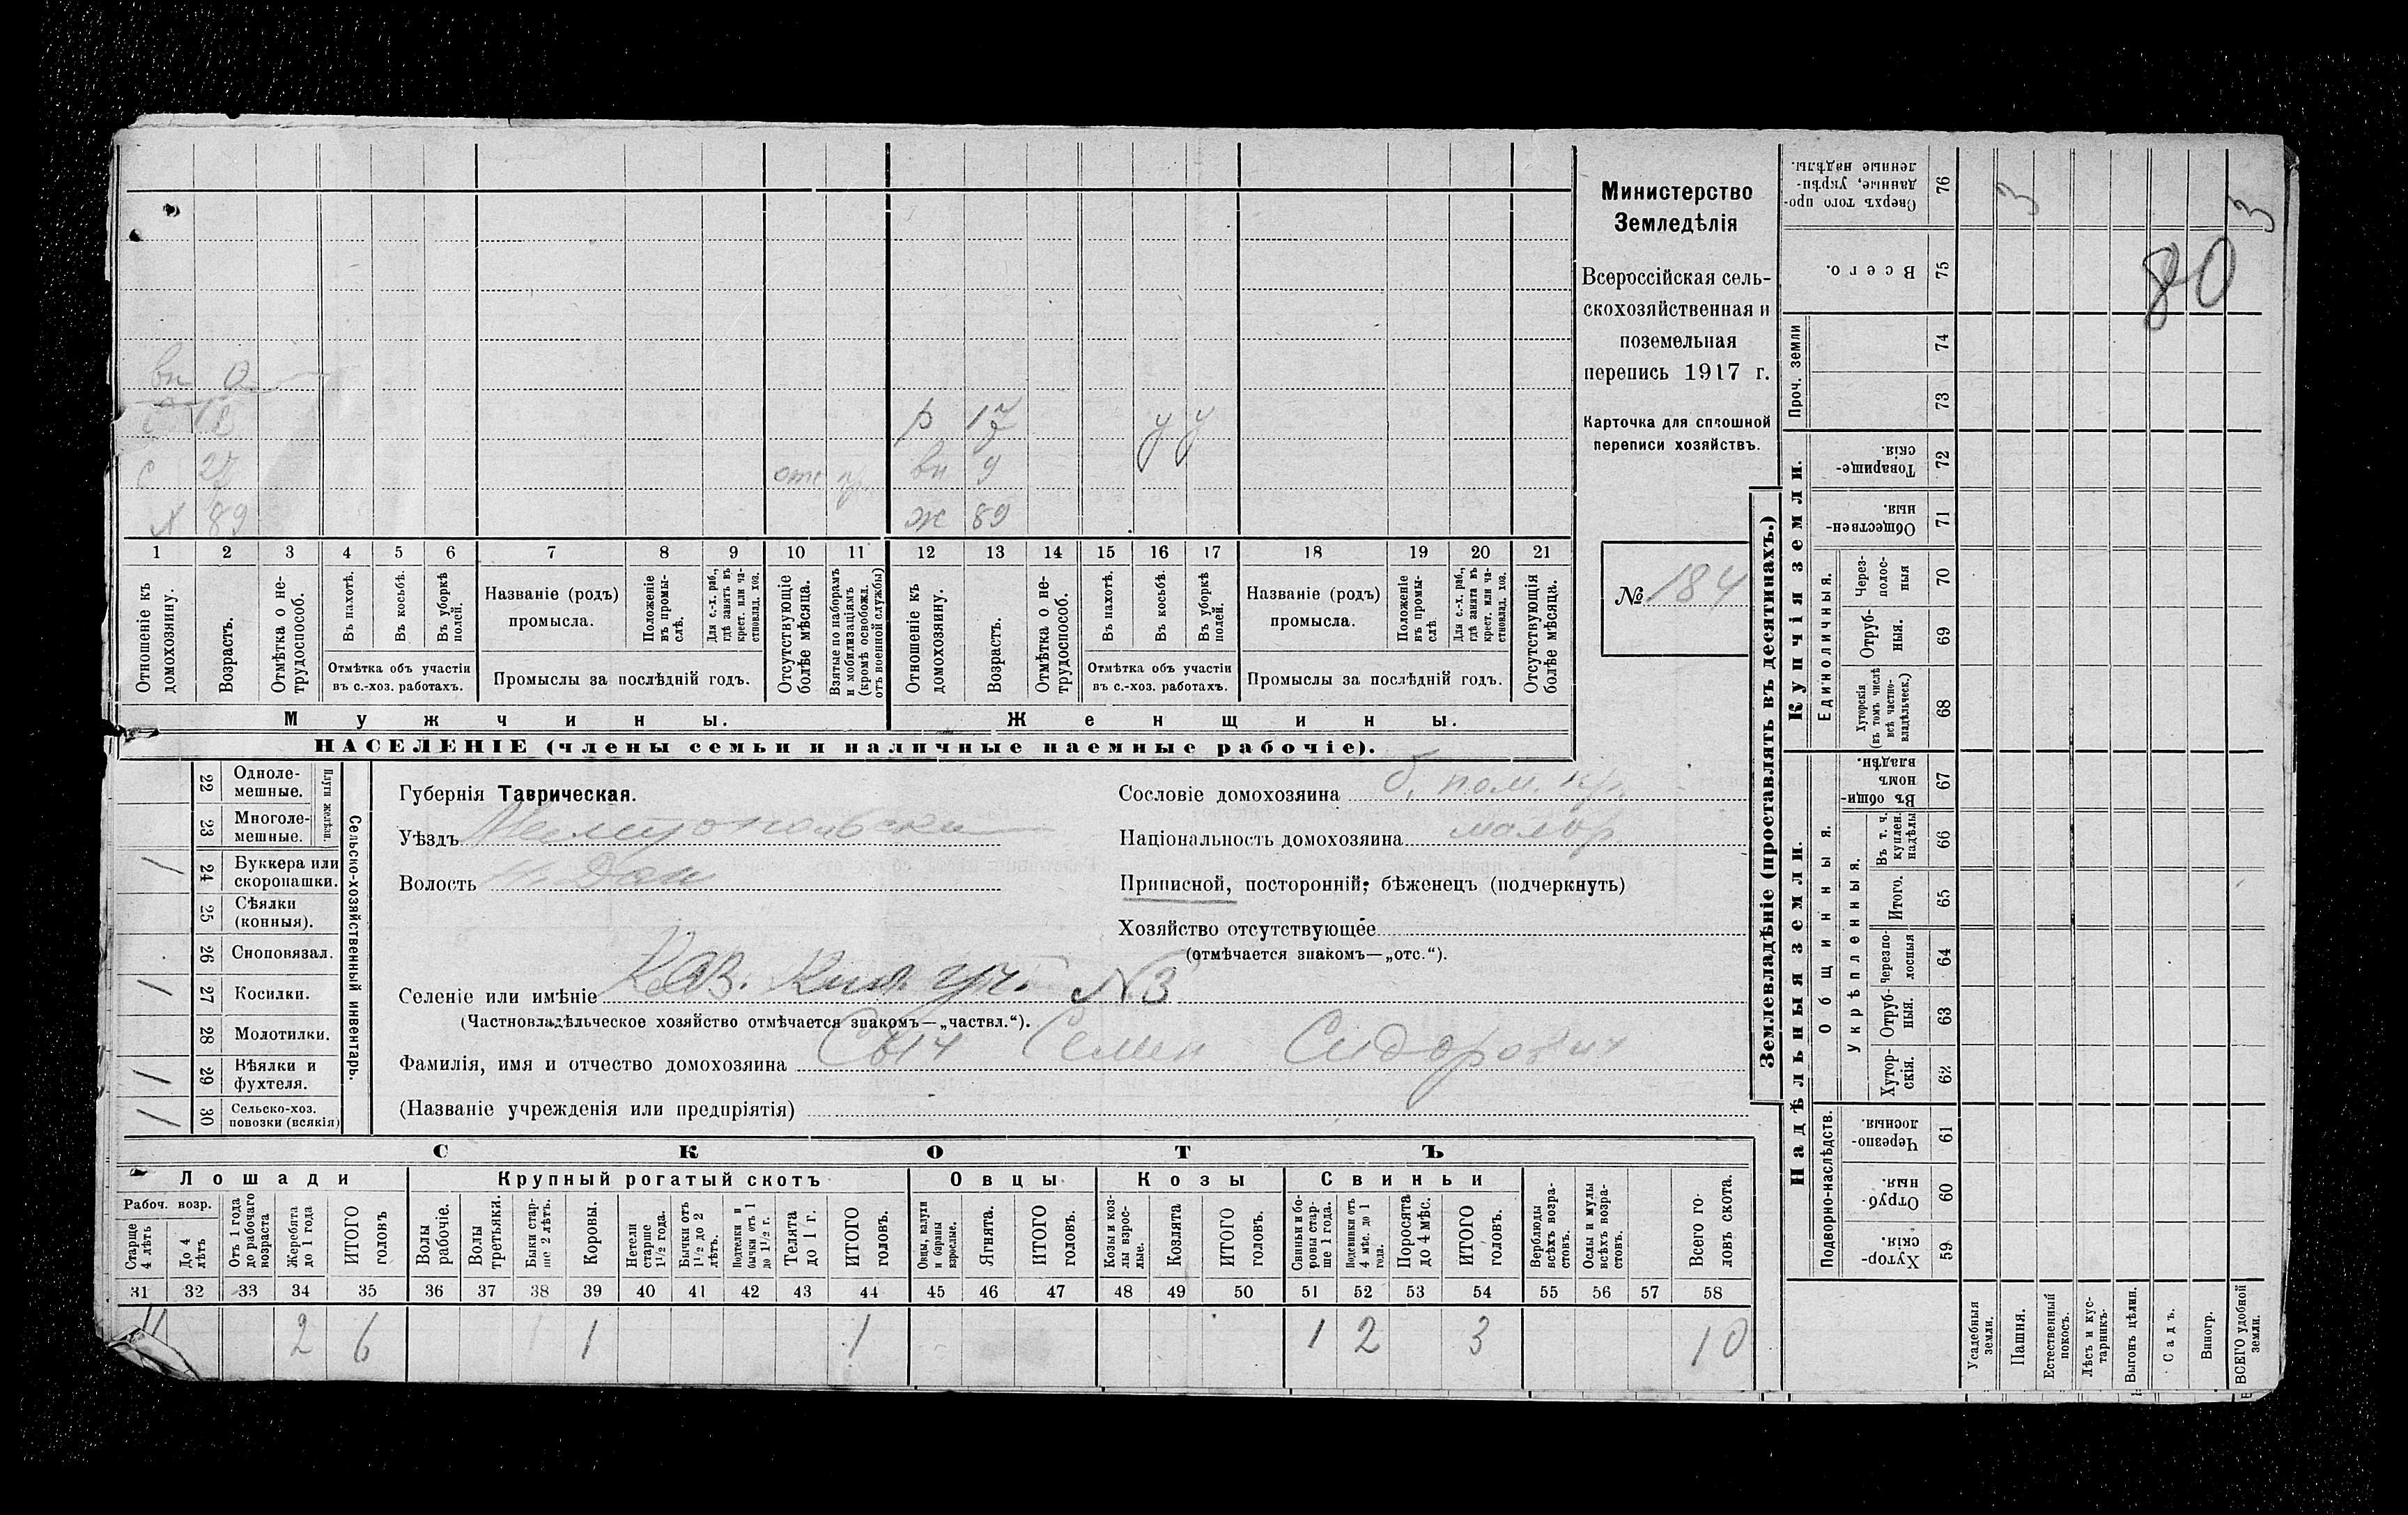 Министерство
Земледѣлія
Всероссійская сель-
скохозяйственная и
поземельная
перепись 1917 г.
Карточка для сплошной
переписи хозяйствъ.
№ 184
вн
с 18
с отс
х 89
р
у у
вн 9
ж 89
1 2 3 4 5 6 7 8 9 10 11 12 13 14 15 16 17 18 19 20 21
Отношеніе къ домохозяину.
Возрастъ.
Отмѣтка о не-трудоспособ.
Въ пахотѣ.
Въ косьбѣ.
Въ уборкѣ полей.
Отмѣтка объ участіи
въ с.-хоз. работахъ.
Названіе (родъ)
промысла.
Положеніе въ промы-слѣ.
Для с.-х. раб., гдѣ занятъ въ крест. или ча-стновлад. хоз.
Промыслы за послѣдній годъ.
Отсутствующіе болѣе мѣсяца.
Взятые по наборамъ и мобилизаціямъ (кромѣ освобожд. отъ военной службы)
Отношеніе къ домохозяину.
Возрастъ.
Отмѣтка о не-трудоспособ.
Въ пахотѣ.
Въ косьбѣ.
Въ уборкѣ полей.
Отмѣтка объ участіи
въ с.-хоз. работахъ.
Названіе (родъ)
промысла.
Положеніе въ промы-слѣ.
Для с.-х. раб., гдѣ занята въ крест. или ча-стновлад. хоз.
Промыслы за послѣдній годъ.
Отсутствующія болѣе мѣсяца.
Мужчины.
Женщины.
НАСЕЛЕНІЕ (члены семьи и наличные наемные рабочіе).
Сельско-хозяйственный инвентарь.
Плуги желѣзн.
22 Одноле-мешные.
23 Многоле-мешные.
/ 24 Буккера или скоропашки.
25 Сѣялки (конныя).
26 Сноповязал.
/ 27 Косилки.
28 Молотилки.
/ 29 Вѣялки и фухтеля.
/ 30 Сельско-хоз. повозки (всякія)
Губернія Таврическая.
Уѣздъ Мелитопольскій
Волость
Сословіе домохозяина б. пом. кр.
Національность домохозяина малор.
Приписной, посторонній, бѣженецъ (подчеркнуть)
Хозяйство отсутствующее
(отмѣчается знакомъ—„отс.“).
Селеніе или имѣніе уч. №3
(Частновладѣльческое хозяйство отмѣчается знакомъ—„частвл.“).
Фамилія, имя и отчество домохозяина Сыч Семен Сидорович
(Названіе учрежденія или предпріятія)
СКОТЪ
Лошади
Крупный рогатый скотъ
Овцы
Козы
Свиньи
Рабоч. возр.
Старше 4 лѣтъ
До 4 лѣтъ
Отъ 1 года до рабочаго возраста
Жеребята до 1 года
ИТОГО головъ
Волы рабочіе.
Волы третьяки.
Быки стар-ше 2 лѣтъ.
Коровы.
Нетели старше 1½ года.
Бычки отъ 1½ до 2 лѣтъ.
Подтелки и бычки отъ 1 до 1½ г.
Телята до 1 г.
ИТОГО головъ.
Овцы, валухи и бараны взрослые.
Ягнята.
ИТОГО головъ.
Козы и коз-лы взрос-лые.
Козлята
ИТОГО головъ.
Свиньи и бо-ровы стар-ше 1 года.
Подсвинки отъ 4 мѣс. до 1 года.
Поросята до 4 мѣс.
ИТОГО головъ.
Верблюды всѣхъ возра-стовъ.
Ослы и мулы всѣхъ возра-стовъ.
Всего го-ловъ скота.
31 32 33 34 35 36 37 38 39 40 41 42 43 44 45 46 47 48 49 50 51 52 53 54 55 56 57 58
2 6 1 1 1 2 3 10
Землевладѣніе (проставлять въ десятинахъ.)
Надѣльныя земли.
Купчія земли.
Проч. земли
Подворно-наслѣдств.
Общинныя.
Укрѣпленныя.
Единоличныя.
Сверхъ того про-данные, укрѣп-ленные надѣлы. 76
Всего. 75
74
73
Товарище-скія. 72
Обществен-ныя. 71
Через-полос-ныя 70
Отруб-ныя. 69
Хуторскія (въ томъ числѣ всѣ частно-владѣльческ.) 68
Въ общин-номъ владѣн. 67
Въ т. ч. куплен. надѣлы 66
Итого. 65
Черезпо-лосныя 64
Отруб-ныя. 63
Хутор-скія. 62
Черезпо-лосныя. 61
Отруб-ныя. 60
Хутор-скія. 59
Усадебныя земли.
Пашня.
Естественный покосъ.
Лѣсъ и кус-тарникъ.
Выгонъ цѣлин.
Садъ.
Виногр.
ВСЕГО удобной земли.
3
3
80